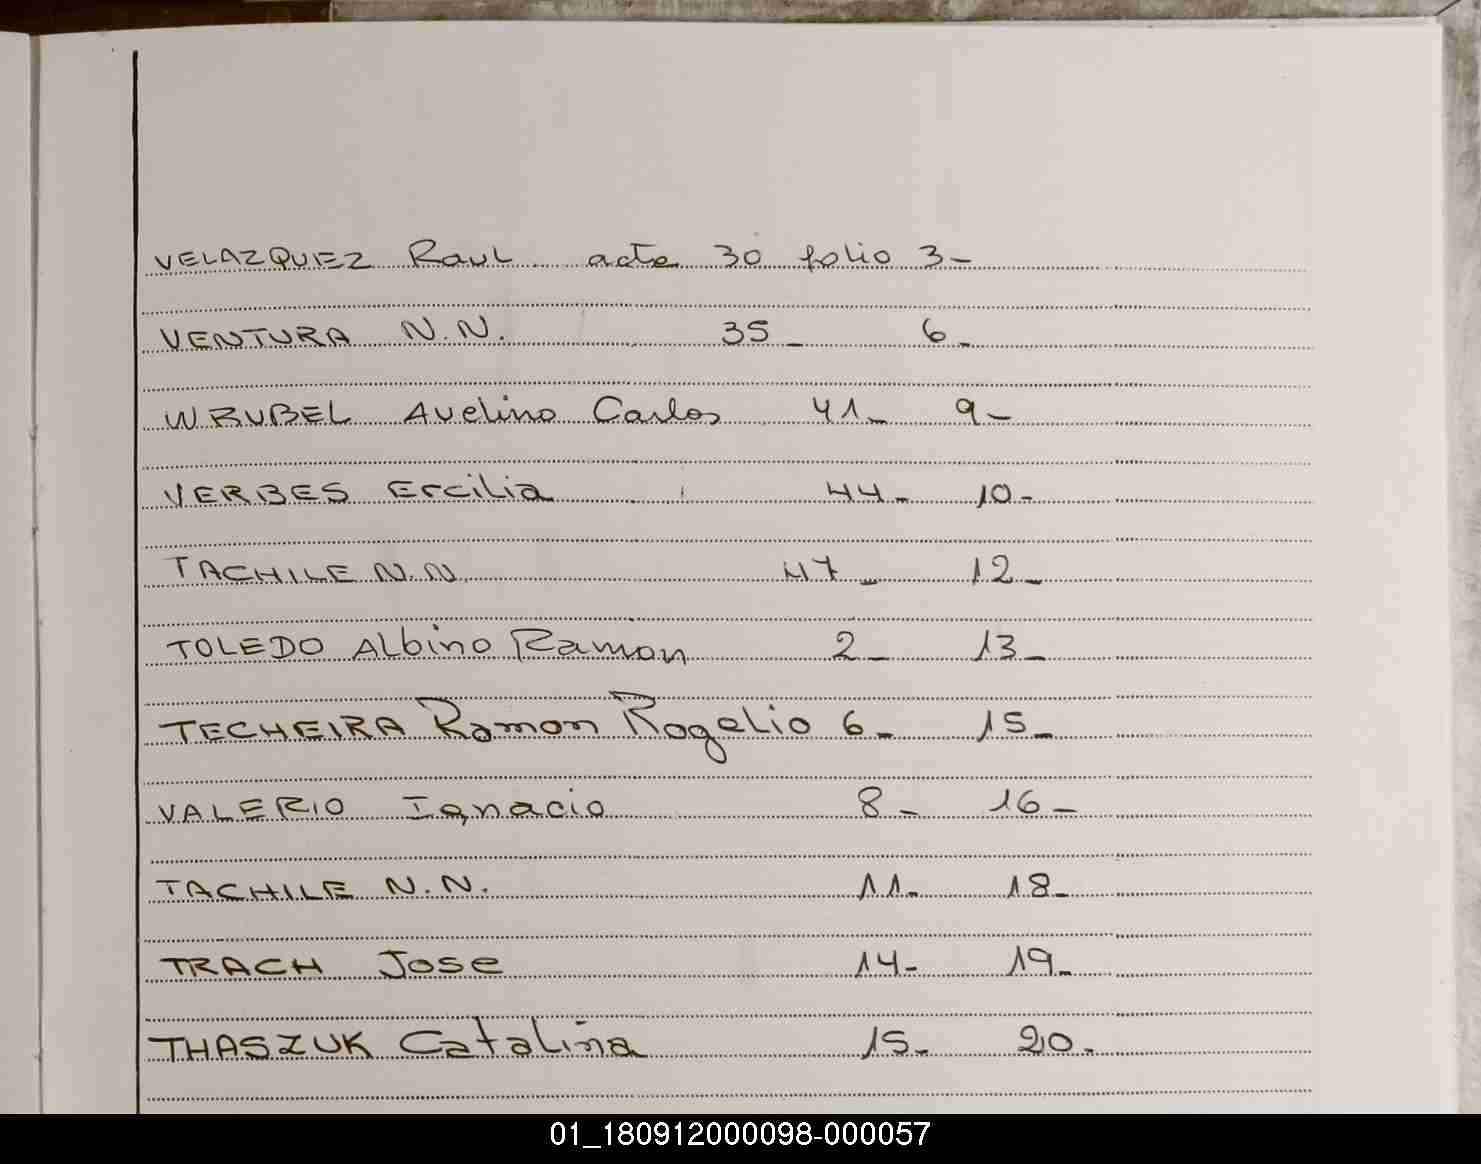 VELAZQUEZ Raul acta 30 folio 3-
VENTURA N.N. 35- 6-
WRUBEL Avelino Carlos 41- 9-
VERBES Ercilia 44- 10-
TACHILE N.N. 47- 12-
TOLEDO Albino Ramon 2- 13-
TECHEIRA Ramon Rogelio 6- 15-
VALERIO Ignacio 8- 16-
TACHILE N.N. 11- 18-
TRACH Jose 14- 19-
THASZUK Catalina 15- 20-
01_180912000098-000057